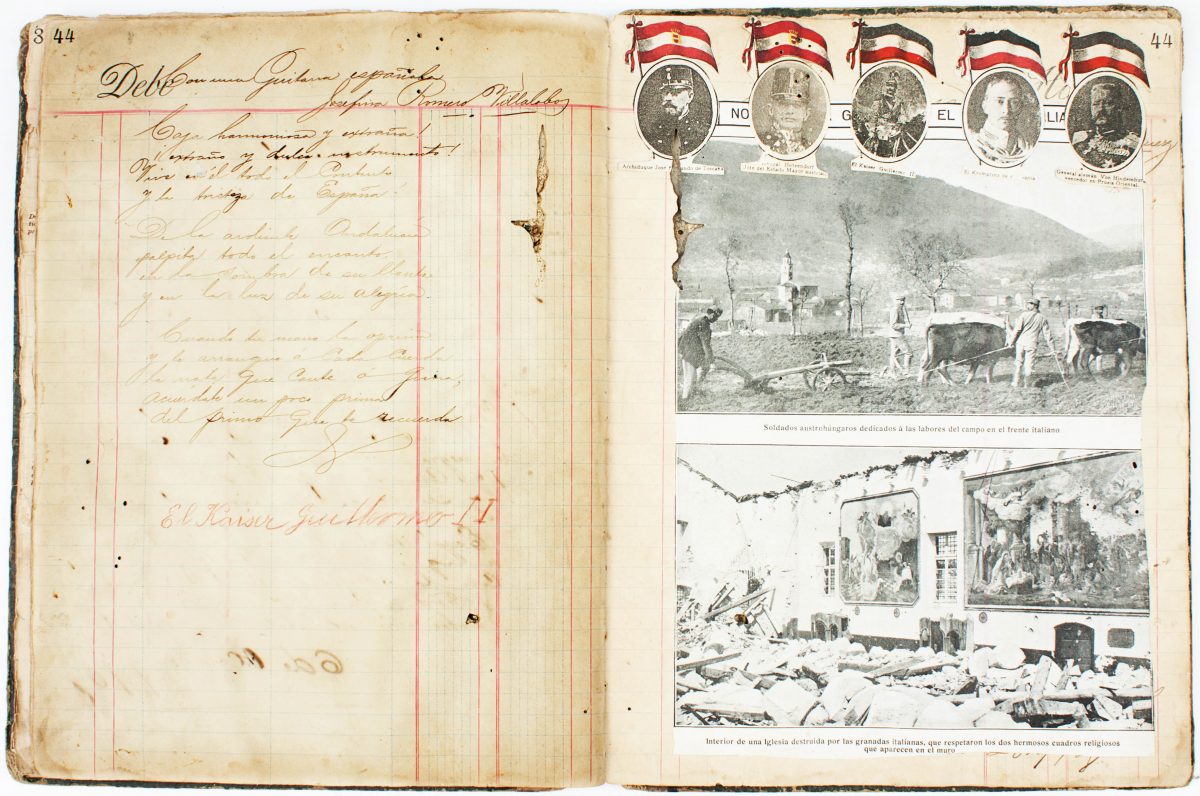 3 44
Debe
Con una Guitarra española
Josefina Romero Villalobos
Caja harmoniosa y extraña!
¡extraño y dulce instrumento!
Vive en él todo el Contento
y la tristeza de España
De la ardiente Andalucia
palpita todo el encanto
en la sombra de su llanto
y en la luz de su alegria.
Cuando tu mano la oprima
y le arranque á Cada Cuerda
la nota que cante ó gima,
acuérdate un poco prima
del primo que te recuerda
El Kaiser Guillermo II
44
NO G EL LIA
Archiduque José Fernando de Toscana
General Hetzendorf
Jefe del Estado Mayor austriaco
El Kaiser Guillermo II
El Kronprinz de
General alemán Von Hindenburg
vencedor en Prusia Oriental
Soldados austrohúngaros dedicados á las labores del campo en el frente italiano
Interior de una Iglesia destruida por las granadas italianas, que respetaron los dos hermosos cuadros religiosos
que aparecen en el muro